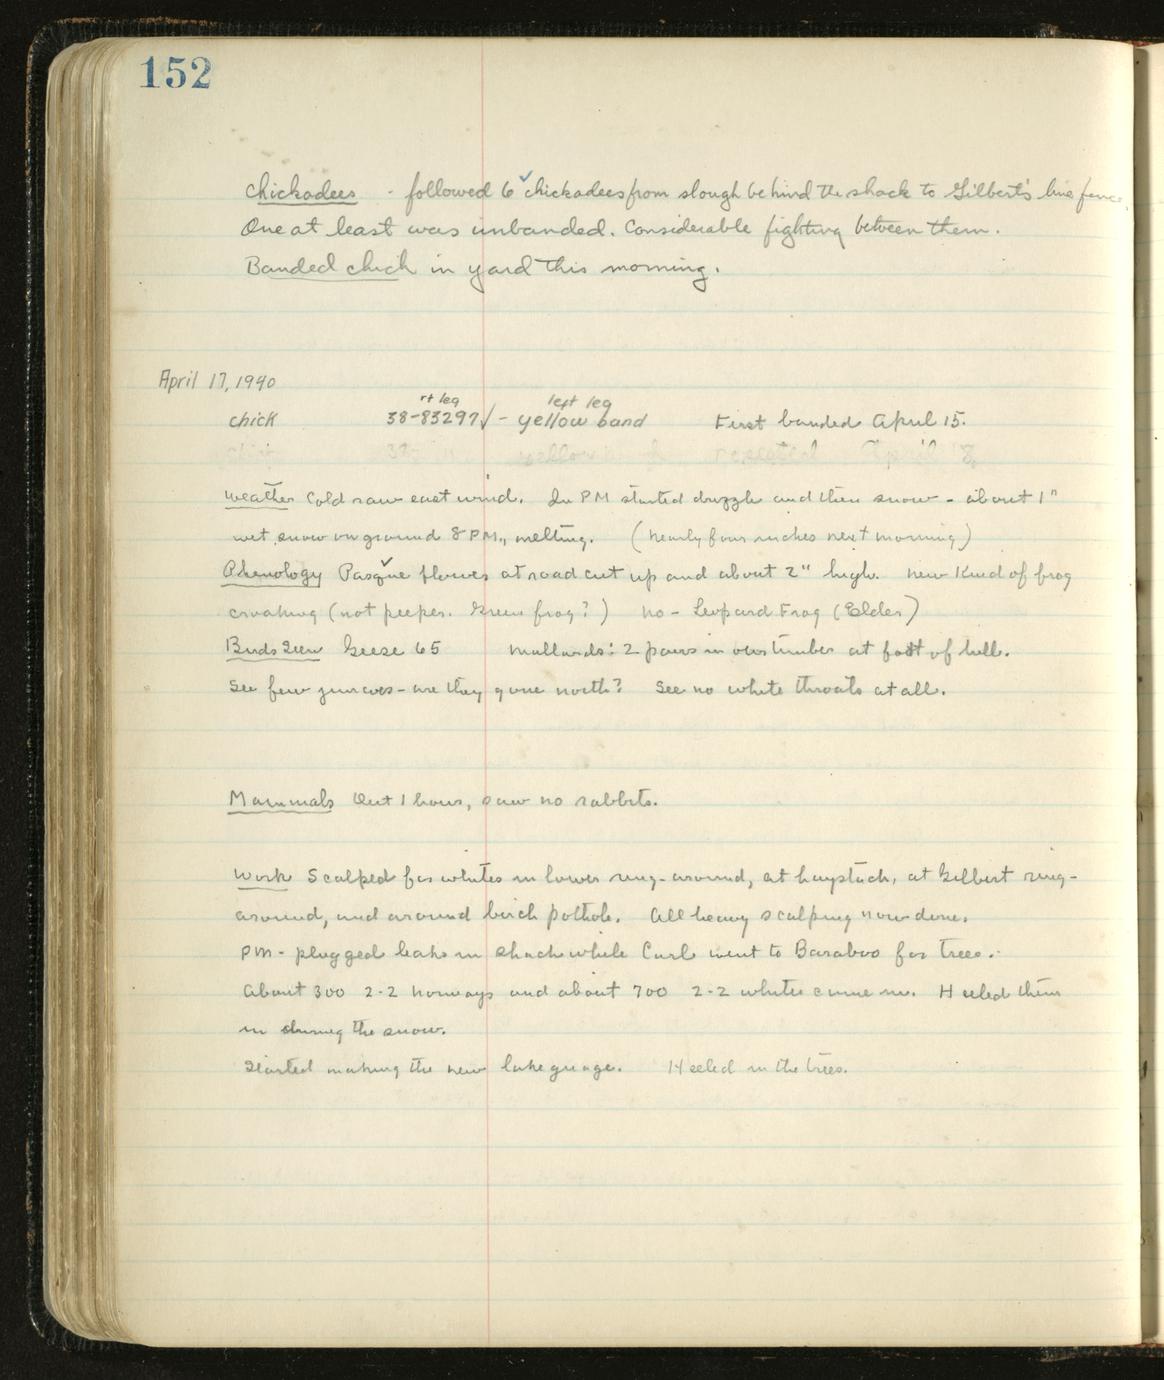 152
Chickadees - followed 6 chickadees from slough behind the shack to Gilbert's line fence.
One at least was unbanded. Considerable fighting between them.
Banded chick in yard this morning.
April 17, 1940
rt leg left leg
chick 38-83297 √ - yellow band First banded April 15.
38 yellow repeated April 18,
Weather Cold raw east wind. In PM started drizzle and then snow - about 1"
wet snow on ground 8 PM., melting. (Nearly four inches next morning)
Phenology Pasque flowers at road cut up and about 2" high. New kind of frog
croaking (not peeper. Green frog?) no - Leopard Frog (Elder)
Birds Seen Geese 65 Mallards: 2 pairs in our timber at foot of hill.
See few juncos - are they gone north? See no white throats at all.
Mammals Out 1 hour, saw no rabbits.
Work Scalped for whites in lower ring-around, at haystack, at Gilbert ring-
around, and around birch pothole. All heavy scalping now done.
PM - plugged leaks in shack while Carl went to Baraboo for trees.
About 300 2-2 norways and about 700 2-2 whites came in. Heeled them
in during the snow.
Started making the new lake guage. Heeled in the trees.